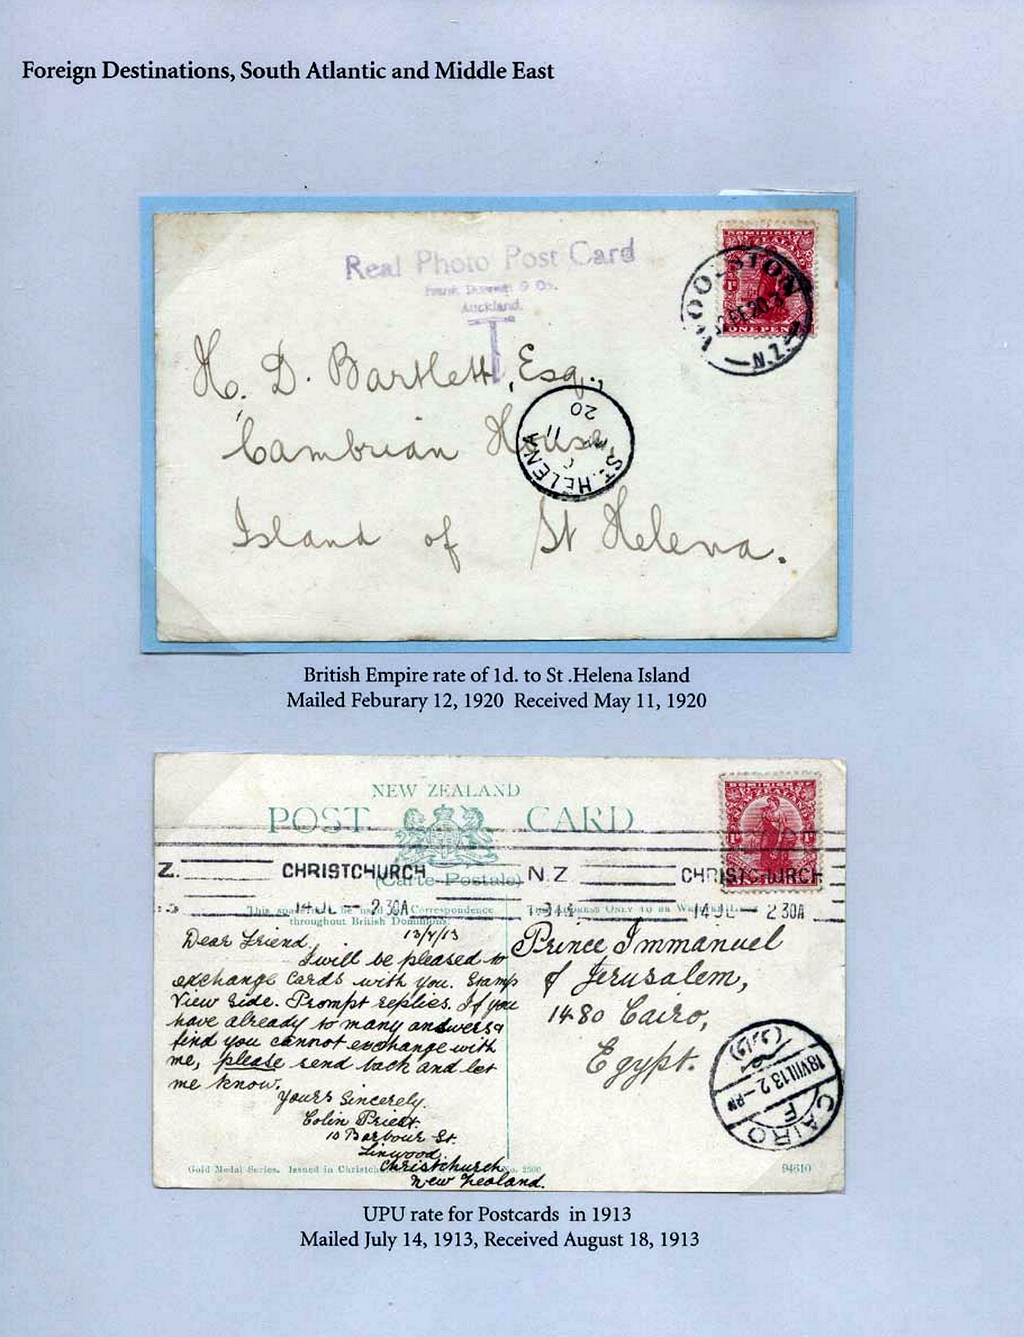 Foreign Destinations, South Atlantic and Middle East
Real Photo Post Card
Auckland.
T
DOMINION OF
ONE PENNY
WOOLSTON
N.Z.
H. D. Bartlett, Esq.,
Cambrian House
Island of St Helena.
ST. HELENA
11
20
British Empire rate of 1d. to St .Helena Island
Mailed Feburary 12, 1920 Received May 11, 1920
NEW ZEALAND
POST CARD
(Carte Postale)
Z. CHRISTCHURCH N.Z CHRISTCHURCH
14 JL 2 30A 14 JL 2 30A
This space may be used for Correspondence
throughout British Dominions.
THE ADDRESS ONLY TO BE WRITTEN
DOMINION OF
Dear Friend, 13/7/13
I will be pleased to
exchange Cards with you. Stamp
View side. Prompt replies. If you
have already to many answers &
find you cannot exchange with
me, please send back and let
me know.
Yours Sincerely.
Colin Priest.
10 Barbour St.
Linwood,
Christchurch
New Zealand.
Prince Immanuel
of Jerusalem,
1480 Cairo,
Egypt.
18 VIII 13 2 - PM
F
CAIRO
Gold Medal Series. Issued in Christchurch No. 2500
94610
UPU rate for Postcards in 1913
Mailed July 14, 1913, Received August 18, 1913